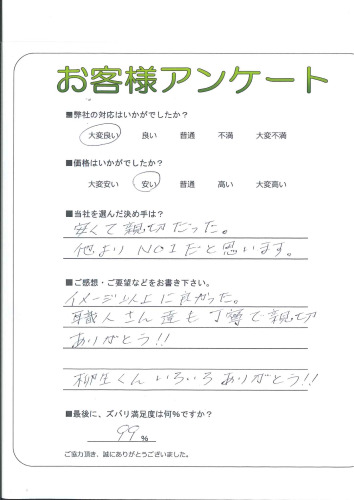 お客様アンケート
■弊社の対応はいかがでしたか?
大変良い 良い 普通 不満 大変不満
■価格はいかがでしたか?
大変安い 安い 普通 高い 大変高い
■当社を選んだ決め手は?
安くて親切だった。
他よりNO1だと思います。
■ご感想・ご要望などをお書き下さい。
イメージ以上に良かった。
職人さん達も丁寧で親切
ありがとう!!
柳生くんいろいろありがとう!!
■最後に、ズバリ満足度は何%ですか?
99%
ご協力頂き、誠にありがとうございました。